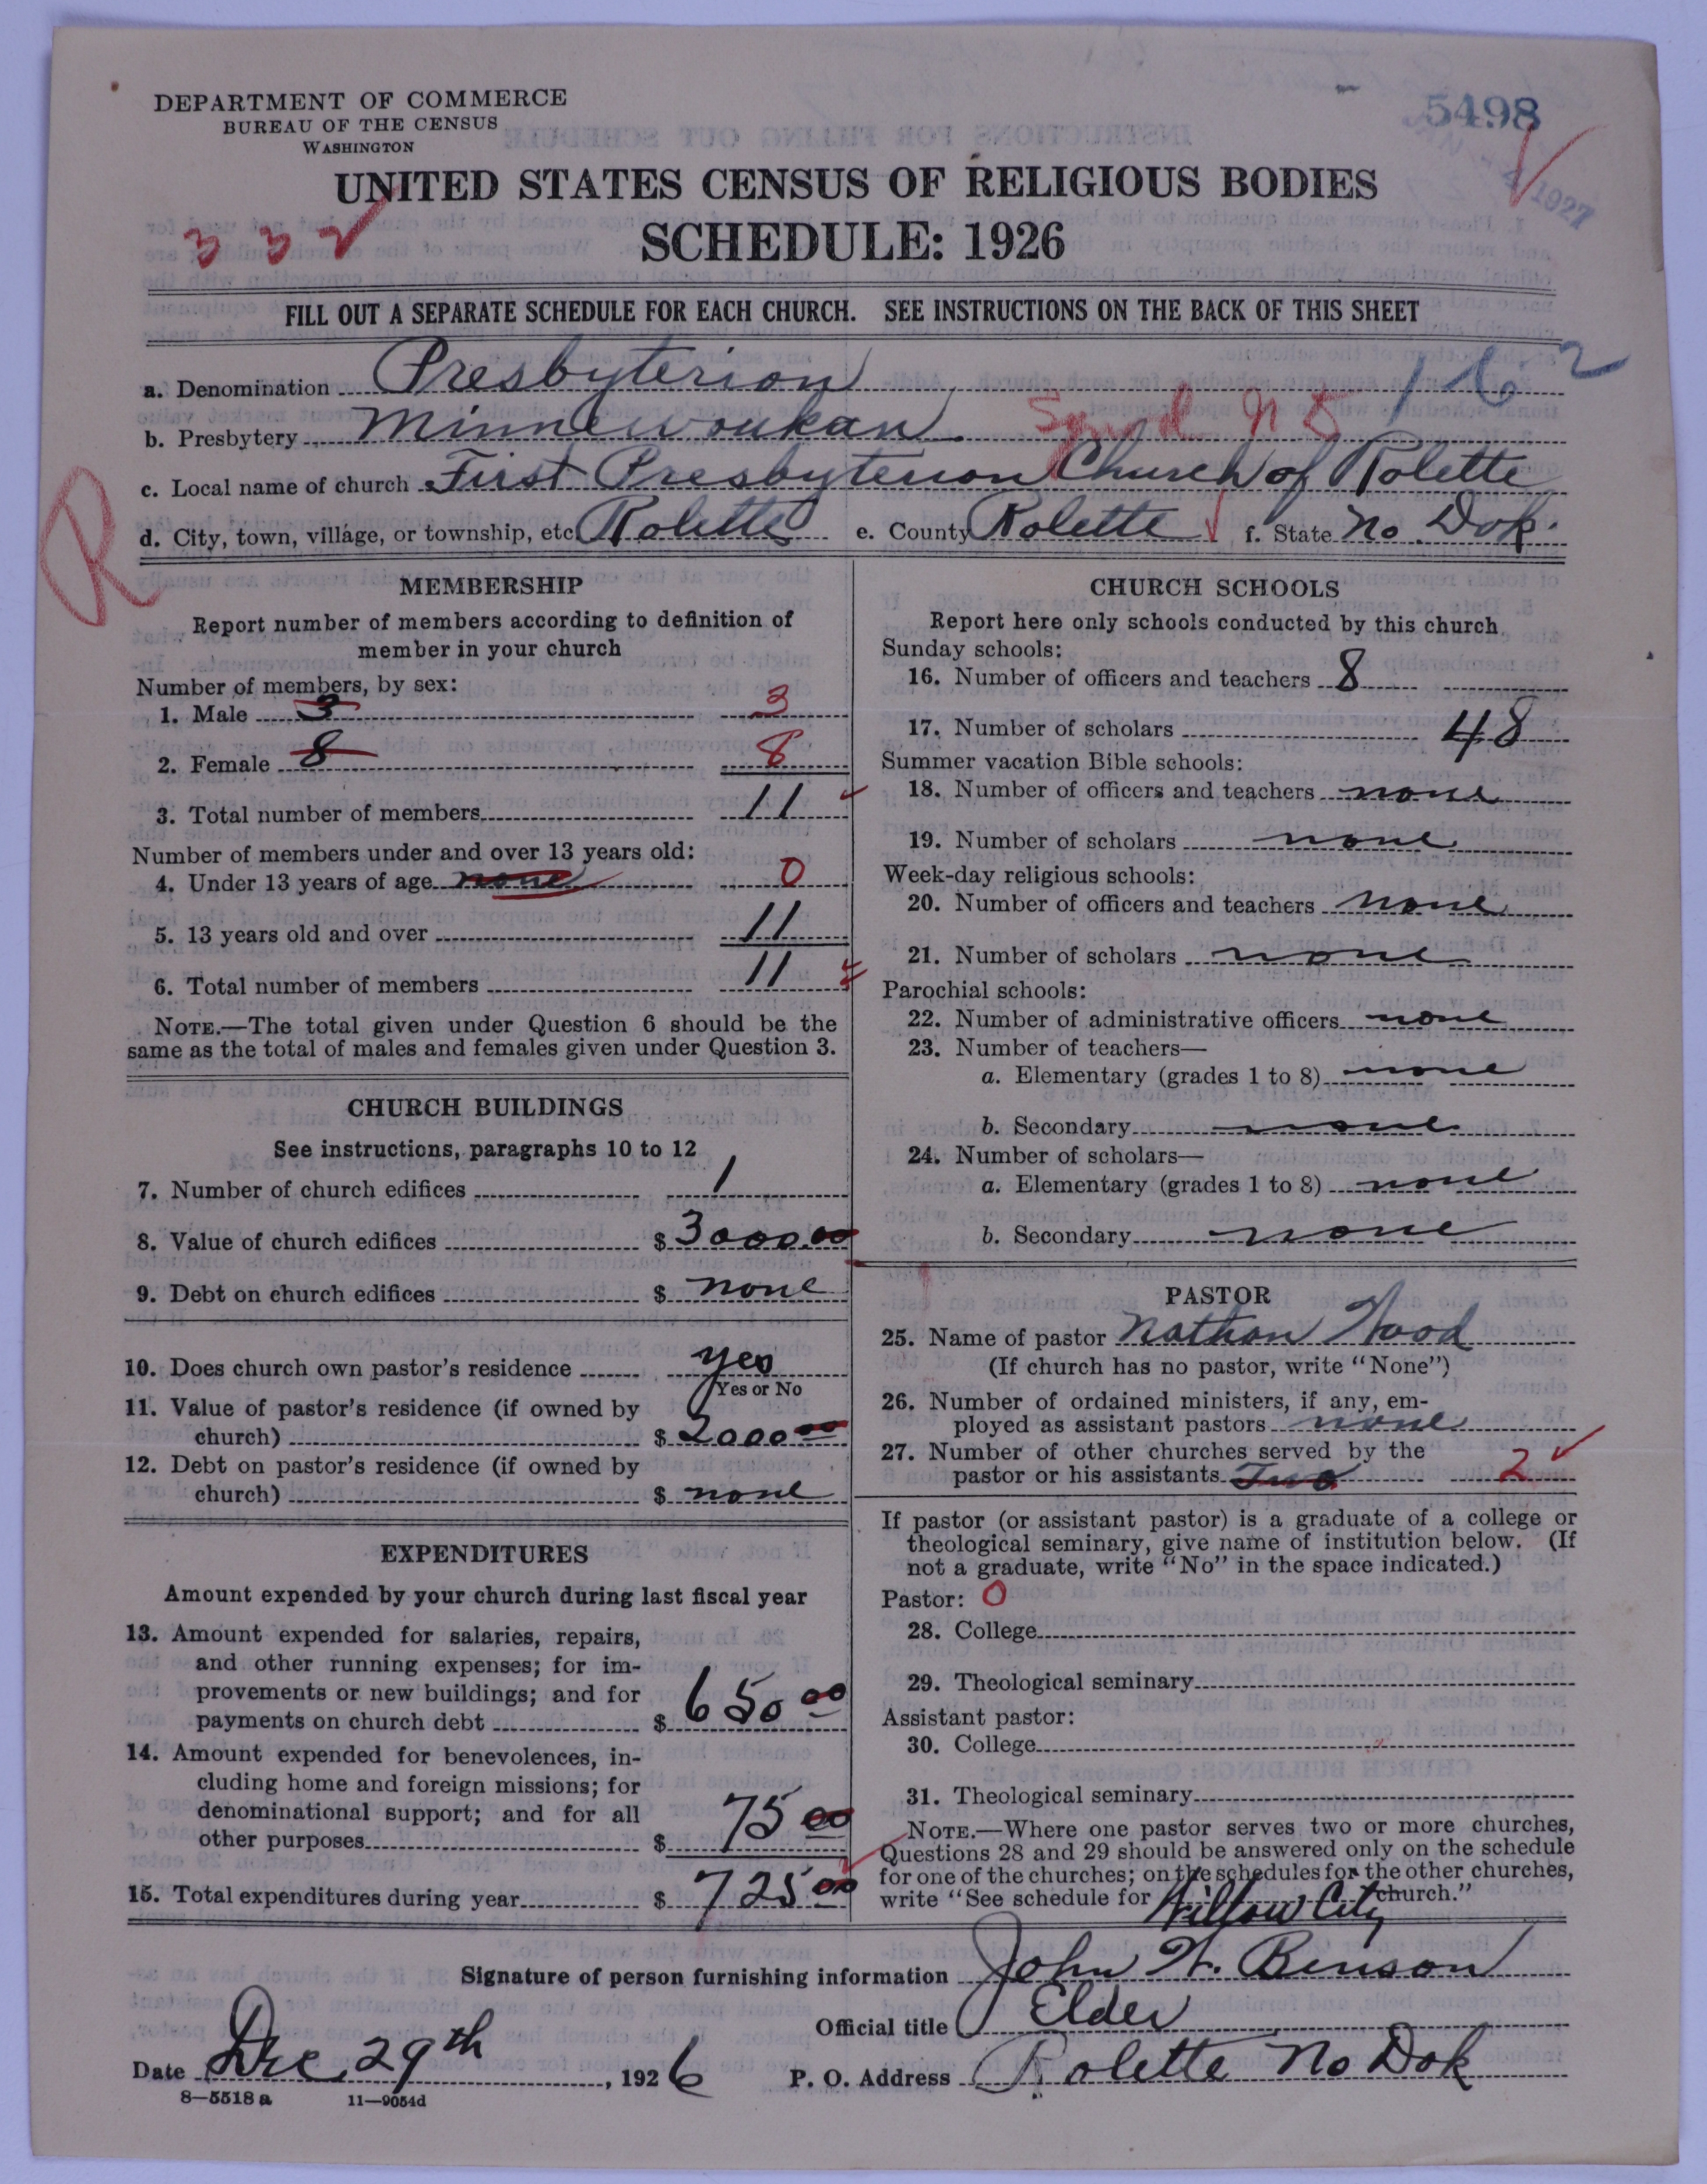 DEPARTMENT OF COMMERCE
BUREAU OF THE CENSUS
WASHINGTON
5498
1927
UNITED STATES CENSUS OF RELIGIOUS BODIES
3 3 2
SCHEDULE: 1926
FILL OUT A SEPARATE SCHEDULE FOR EACH CHURCH. SEE INSTRUCTIONS ON THE BACK OF THIS SHEET
162
a. Denomination Presbyterion
b. Presbytery Minnewoukan
c. Local name of church First Presbyterion Church of Rolette
R
d. City, town, village, or township, etc. Rolette e. County Rolette f. State No. Dok.
MEMBERSHIP
Report number of members according to definition of
member in your church
Number of members, by sex:
1. Male 3 3
2. Female 8 8
3. Total number of members 11
Number of members under and over 13 years old:
4. Under 13 years of age none 0
5. 13 years old and over 11
6. Total number of members 11
NOTE.—The total given under Question 6 should be the
same as the total of males and females given under Question 3.
CHURCH BUILDINGS
See instructions, paragraphs 10 to 12
7. Number of church edifices 1
8. Value of church edifices $ 3000.00
9. Debt on church edifices $ none
10. Does church own pastor's residence yes
Yes or No
11. Value of pastor's residence (if owned by
church) $ 2000 00
12. Debt on pastor's residence (if owned by
church) $ none
EXPENDITURES
Amount expended by your church during last fiscal year
13. Amount expended for salaries, repairs,
and other running expenses; for im-
provements or new buildings; and for
payments on church debt $ 650 00
14. Amount expended for benevolences, in-
cluding home and foreign missions; for
denominational support; and for all
other purposes $ 75 00
15. Total expenditures during year $ 725 00
CHURCH SCHOOLS
Report here only schools conducted by this church
Sunday schools:
16. Number of officers and teachers 8
17. Number of scholars 48
Summer vacation Bible schools:
18. Number of officers and teachers none
19. Number of scholars none
Week-day religious schools:
20. Number of officers and teachers none
21. Number of scholars none
Parochial schools:
22. Number of administrative officers none
23. Number of teachers—
a. Elementary (grades 1 to 8) none
b. Secondary none
24. Number of scholars—
a. Elementary (grades 1 to 8) none
b. Secondary none
PASTOR
25. Name of pastor Nathan Wood
(If church has no pastor, write "None")
26. Number of ordained ministers, if any, em-
ployed as assistant pastors none
27. Number of other churches served by the
pastor or his assistants Two 2
If pastor (or assistant pastor) is a graduate of a college or
theological seminary, give name of institution below. (If
not a graduate, write "No" in the space indicated.)
Pastor: 0
28. College
29. Theological seminary
Assistant pastor:
30. College
31. Theological seminary
NOTE.—Where one pastor serves two or more churches,
Questions 28 and 29 should be answered only on the schedule
for one of the churches; on the schedules for the other churches,
write "See schedule for Willow City church."
Signature of person furnishing information John W. Benson
Official title Elder
Date Dec 29th, 1926 P. O. Address Rolette No Dok
8—5518 a 11—9054d